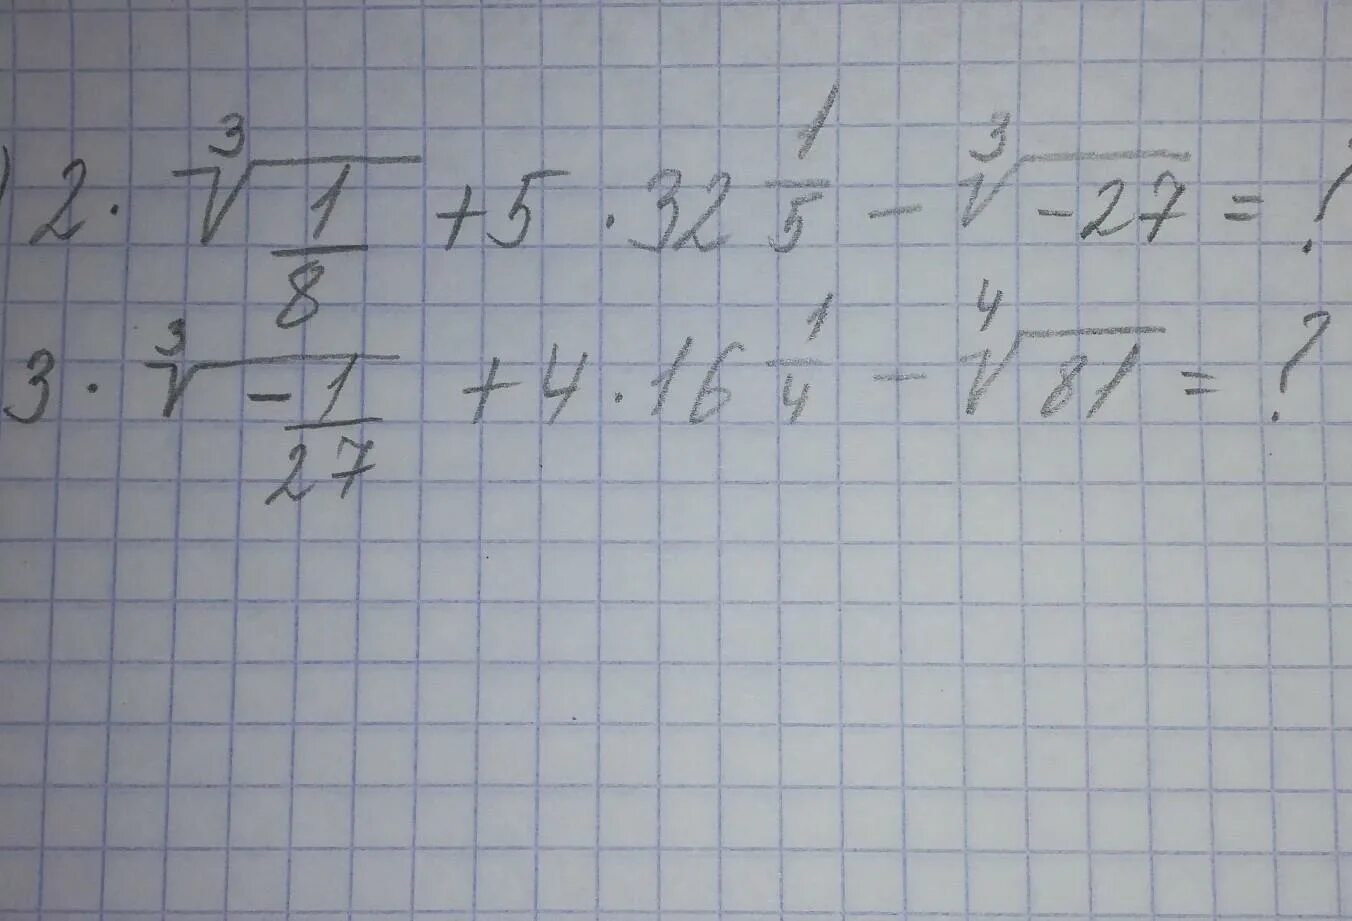 ) 2 · ∛(1/8) + 5 · 32^(1/5) − ∛(−27) = ?
3 · ∛(−1/27) + 4 · 16^(1/4) − ∜81 = ?